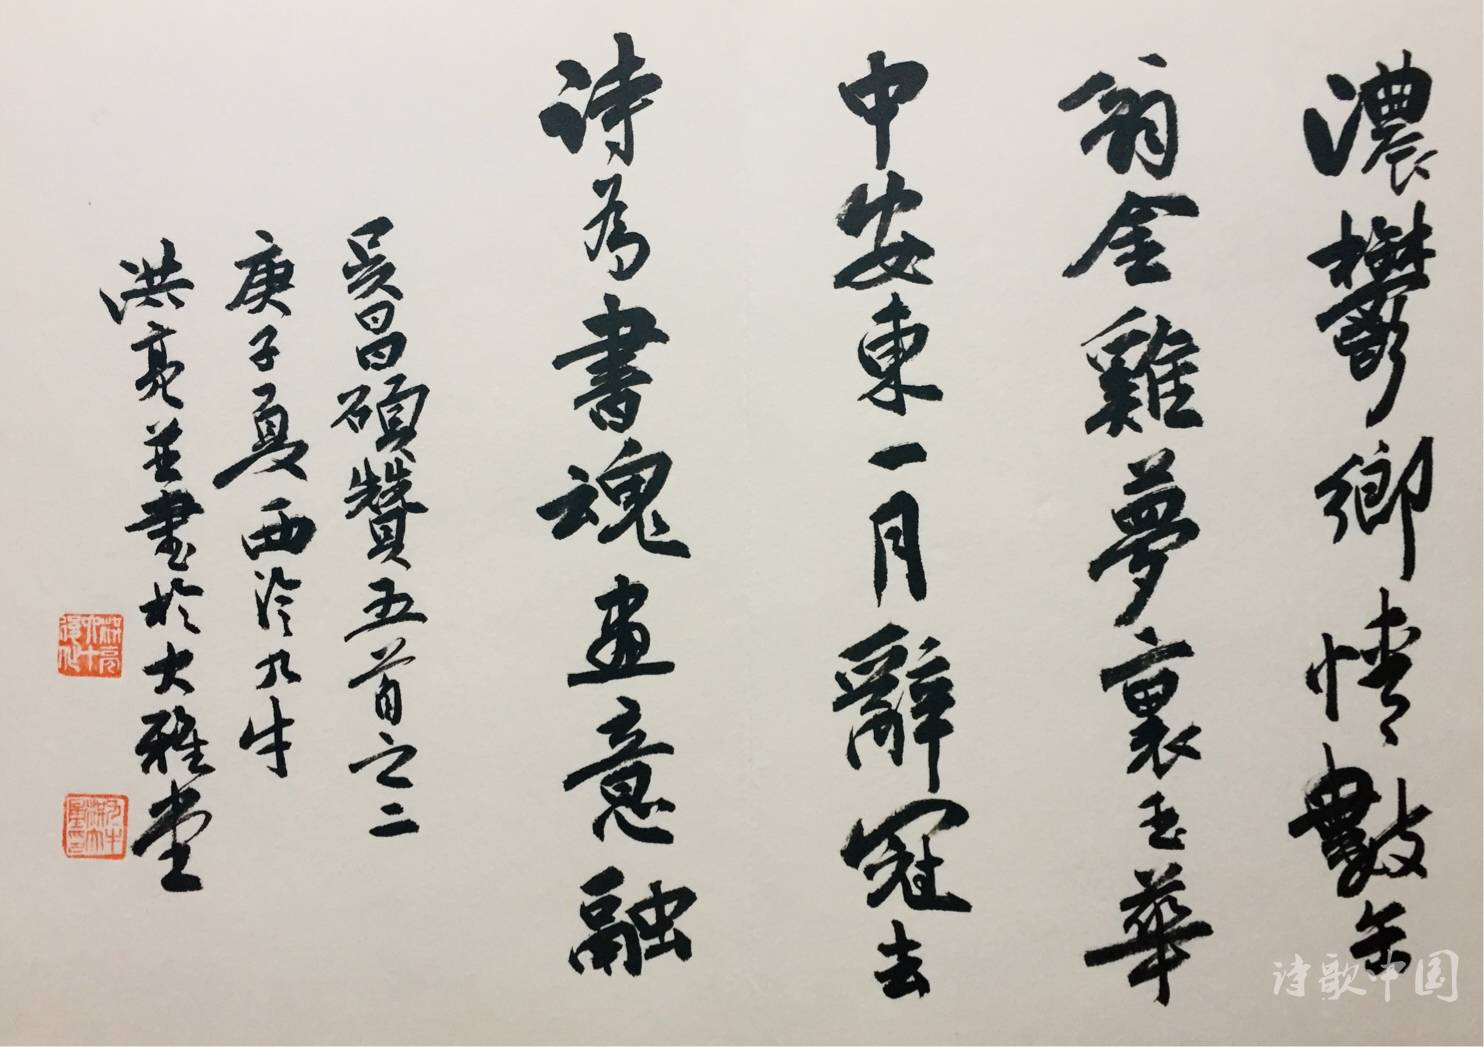 濃鬱鄉情數缶
翁金雞夢裏玉華
中安東一月辭冠去
詩為書魂畫意融
吳昌碩贊五首之二
庚子夏西泠九牛
洪亮並書於大雅堂
洪亮六十後作
诗歌中国